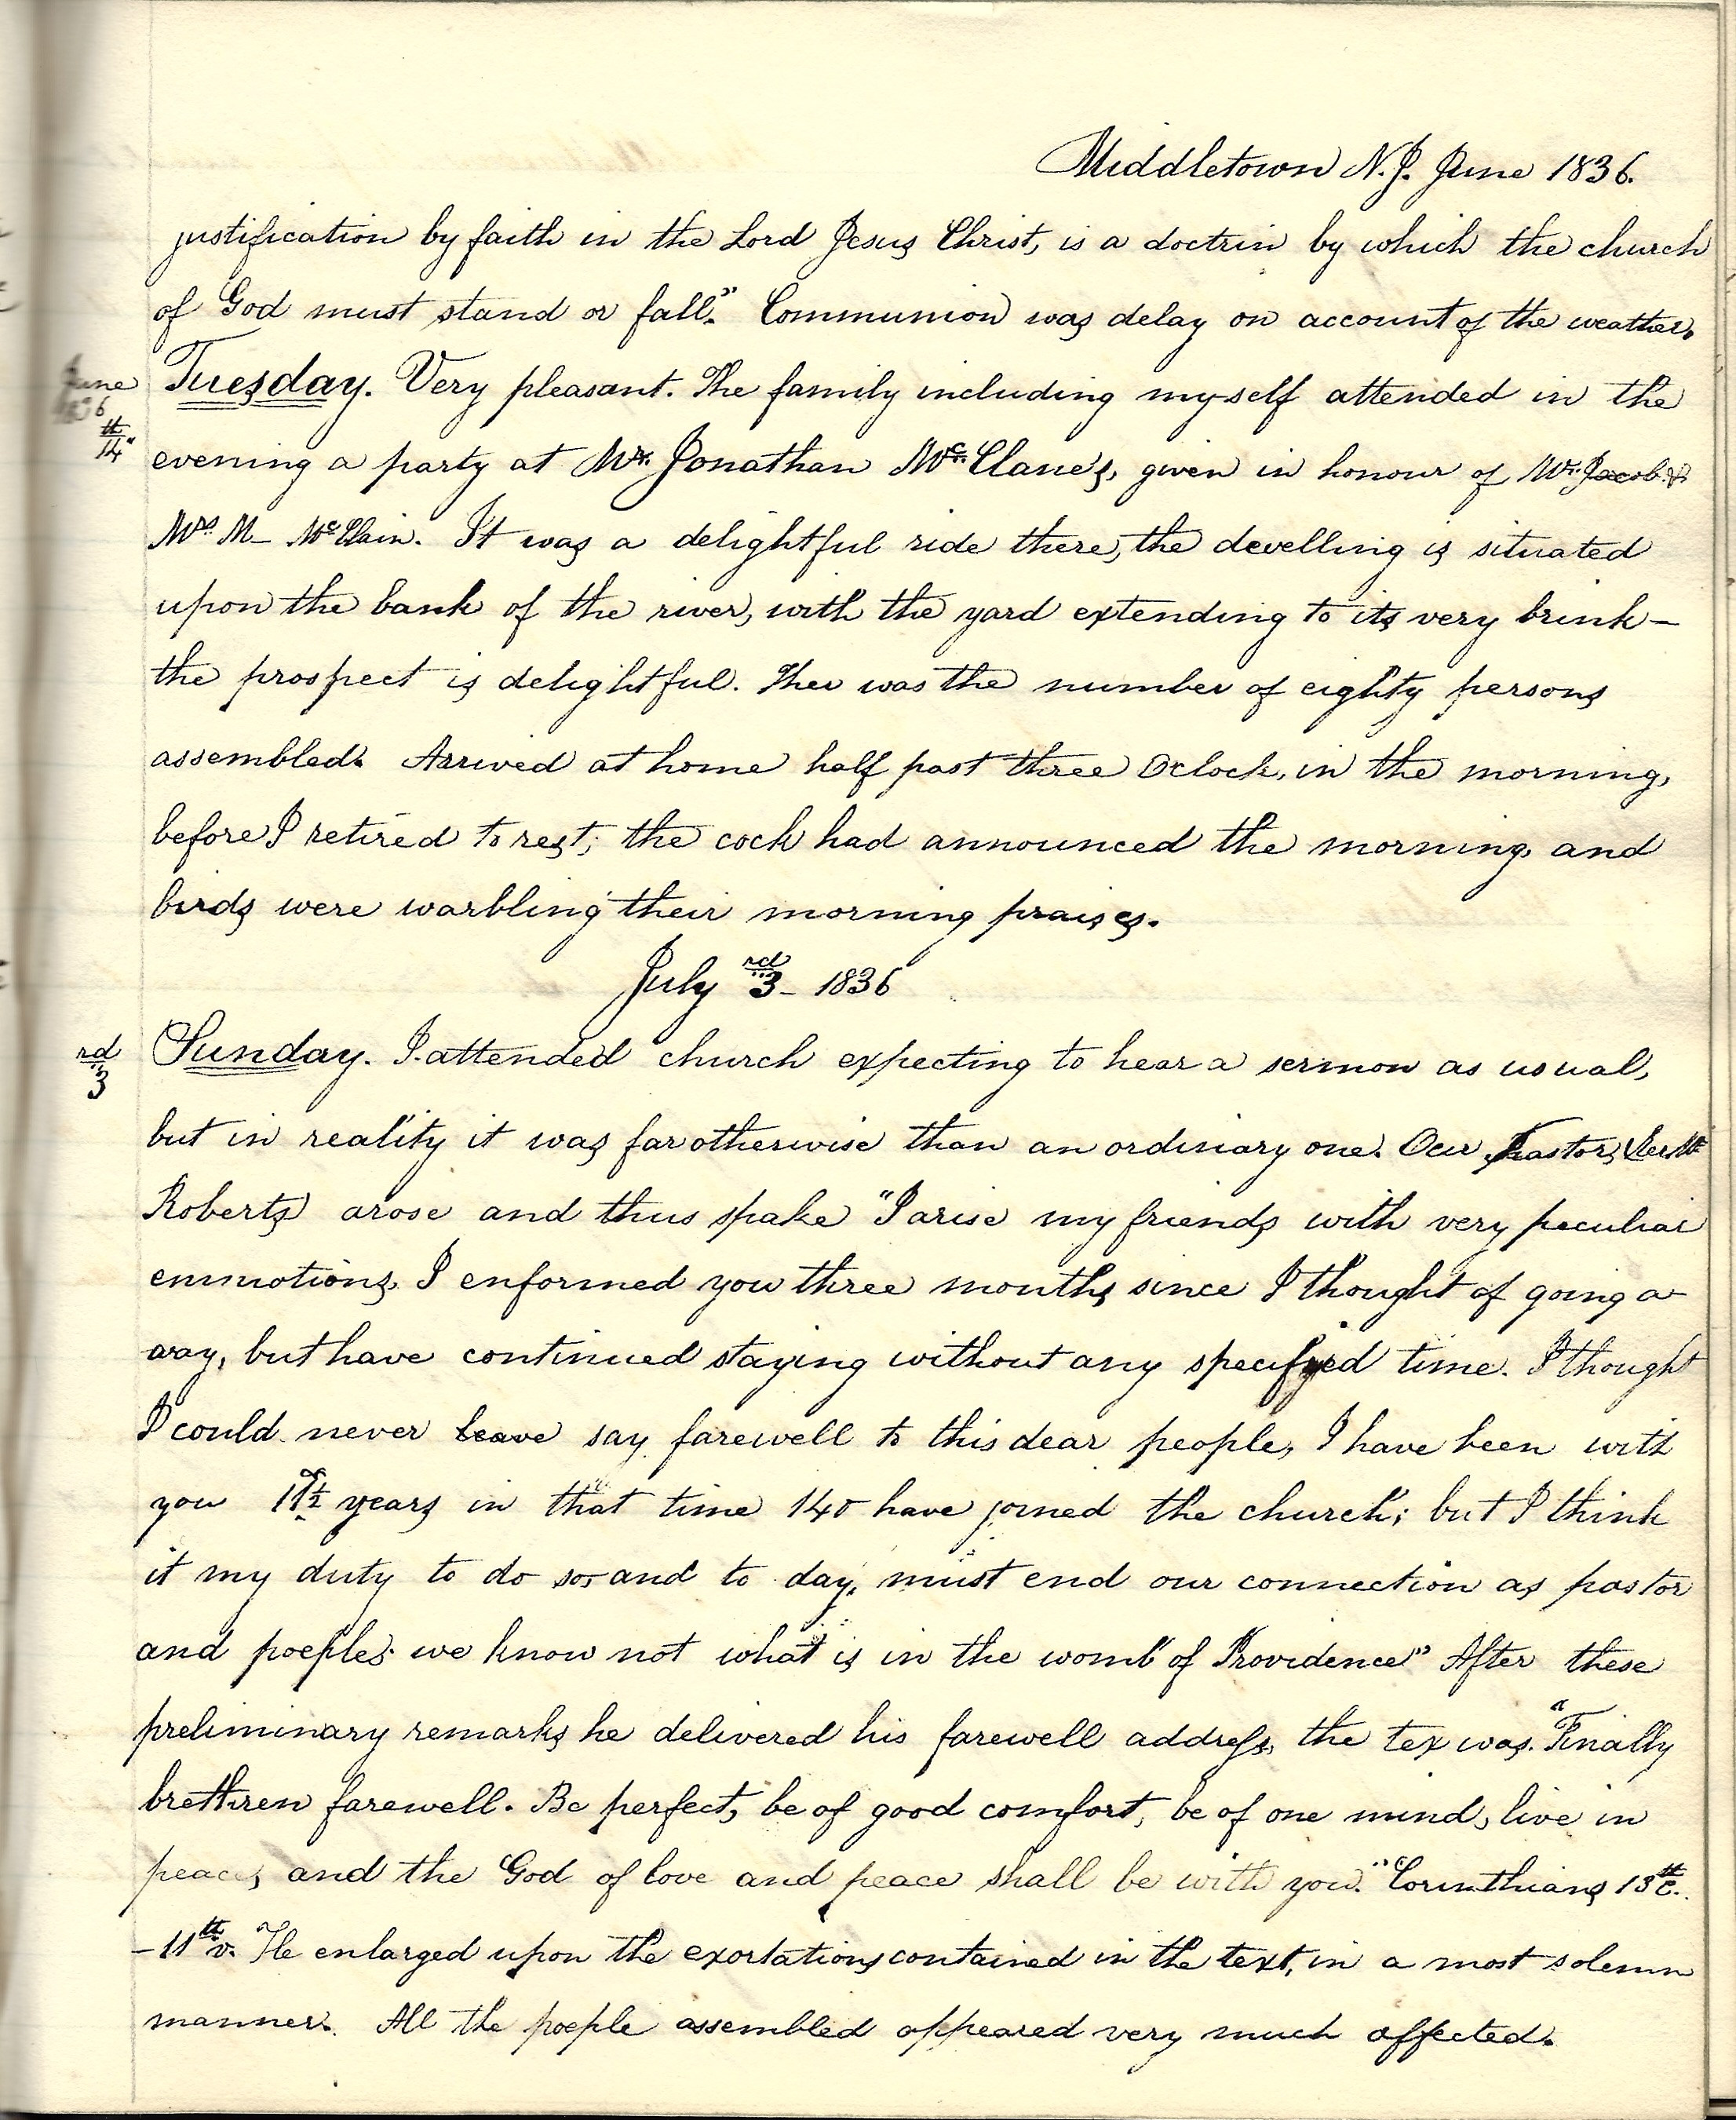 Middletown N.J. June 1836.
justification by faith in the Lord Jesus Christ, is a doctrin by which the church
of God must stand or fall." Communion was delay on account of the weather.
June
1836
14th
Tuesday. Very pleasant. The family including my-self attended in the
evening a party at Mr. Jonathan Mc.Clane's, given in honour of Mr. Jacob &
Mrs. M- McClain. It was a delightful ride there, the devellling is situated
upon the bank of the river, with the yard extending to its very brink-
the prospect is delightful. Ther was the number of eighty persons
assembled. Arrived at home half past three Oclock, in the morning,
before I retired to rest; the cock had announced the morning, and
birds were warbling their morning praises.
July 3rd- 1836
3rd
Sunday. I attended church expecting to hear a sermon as usual,
but in reality it was far otherwise than an ordinary one. Our Pastor,
Roberts arose and thus spake "I arise my friends with very peculiar
emmotions. I enformed you three months since I thought of going a-
way, but have continued staying without any specifyed time. I thought
I could never leave say farewell to this dear people, I have been with
you 11 1/2 years in that time 140 have joined the church; but I think
it my duty to do so, and to day, must end our connection as pastor
and poeple; we know not what is in the womb of Providence" After these
preliminary remarks he delivered his farewell address, the tex was. "Finally
brethren farewell. Be perfect, be of good comfort, be of one mind, live in
peace, and the God of love and peace shall be with you." Corinthians 13th c.
-11th v. He enlarged upon the exortations contained in the text, in a most solemn
manner. All the poeple assembled appeared very much affected.